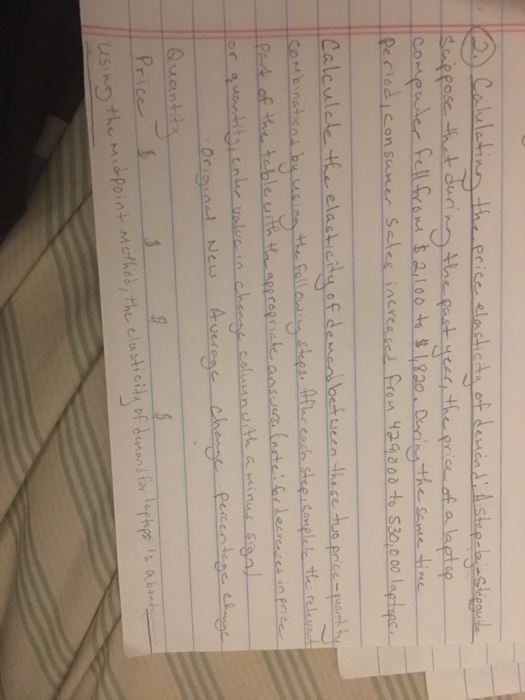 2. Calulating the price elasticity of demand: A step-by-step guide
suppose that during the past year, the price of a laptop
computer fell from $2,100 to $1,820. During the same time
period, consumer sales increased from 429,000 to 530,000 laptops.
Calculate the elasticity of demand between these two price-quantity
combinations by using the following steps. After each step, complete the relevant
part of the table with the appropriate answers. (note: for decreases in price
or quantity, enter value in change column with a minus sign)
Original New Average Change percentage change
Quantity
Price → $ $ $ $
using the midpoint method, the elasticity of demand for laptops is about